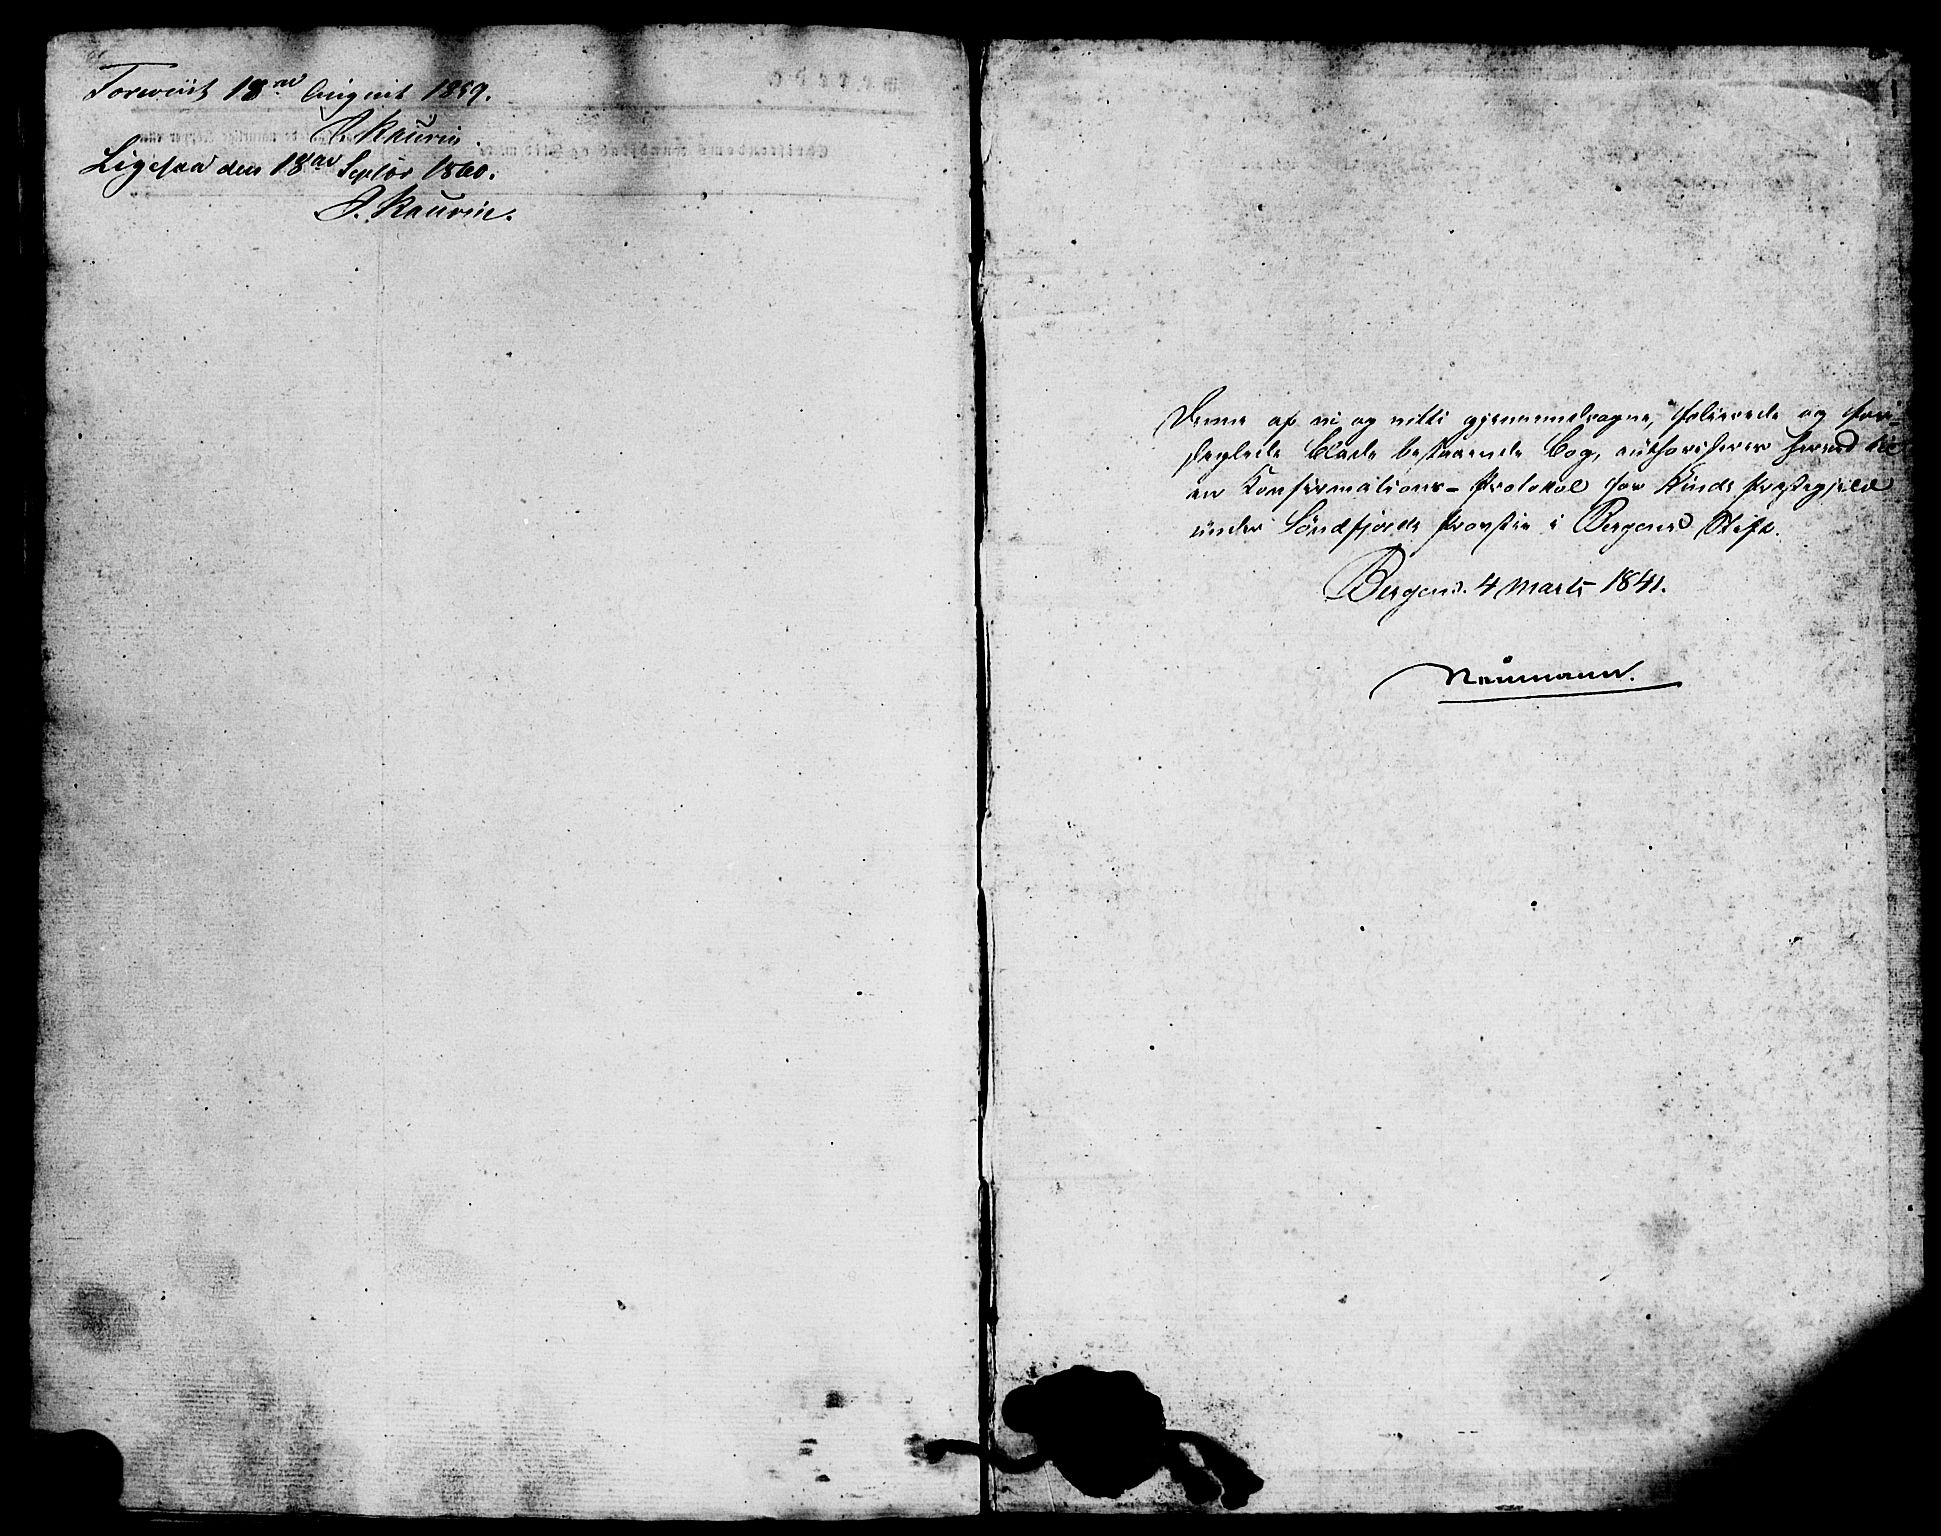 Foreviist 18de August 1859.
J. Kaurin.
Ligesaa den 18de Septbr 1860.
J. Kaurin.
Denne af ni og nitti gjennemdragne, folierede og for-
seglede Blade bestaaende Bog, authoriseres herved til
en Konfirmations-Protokol for Kinds Præstegjeld
under Søndfjords Provstie i Bergens Stift.
Bergen d. 4 Marts 1841.
Neumann.